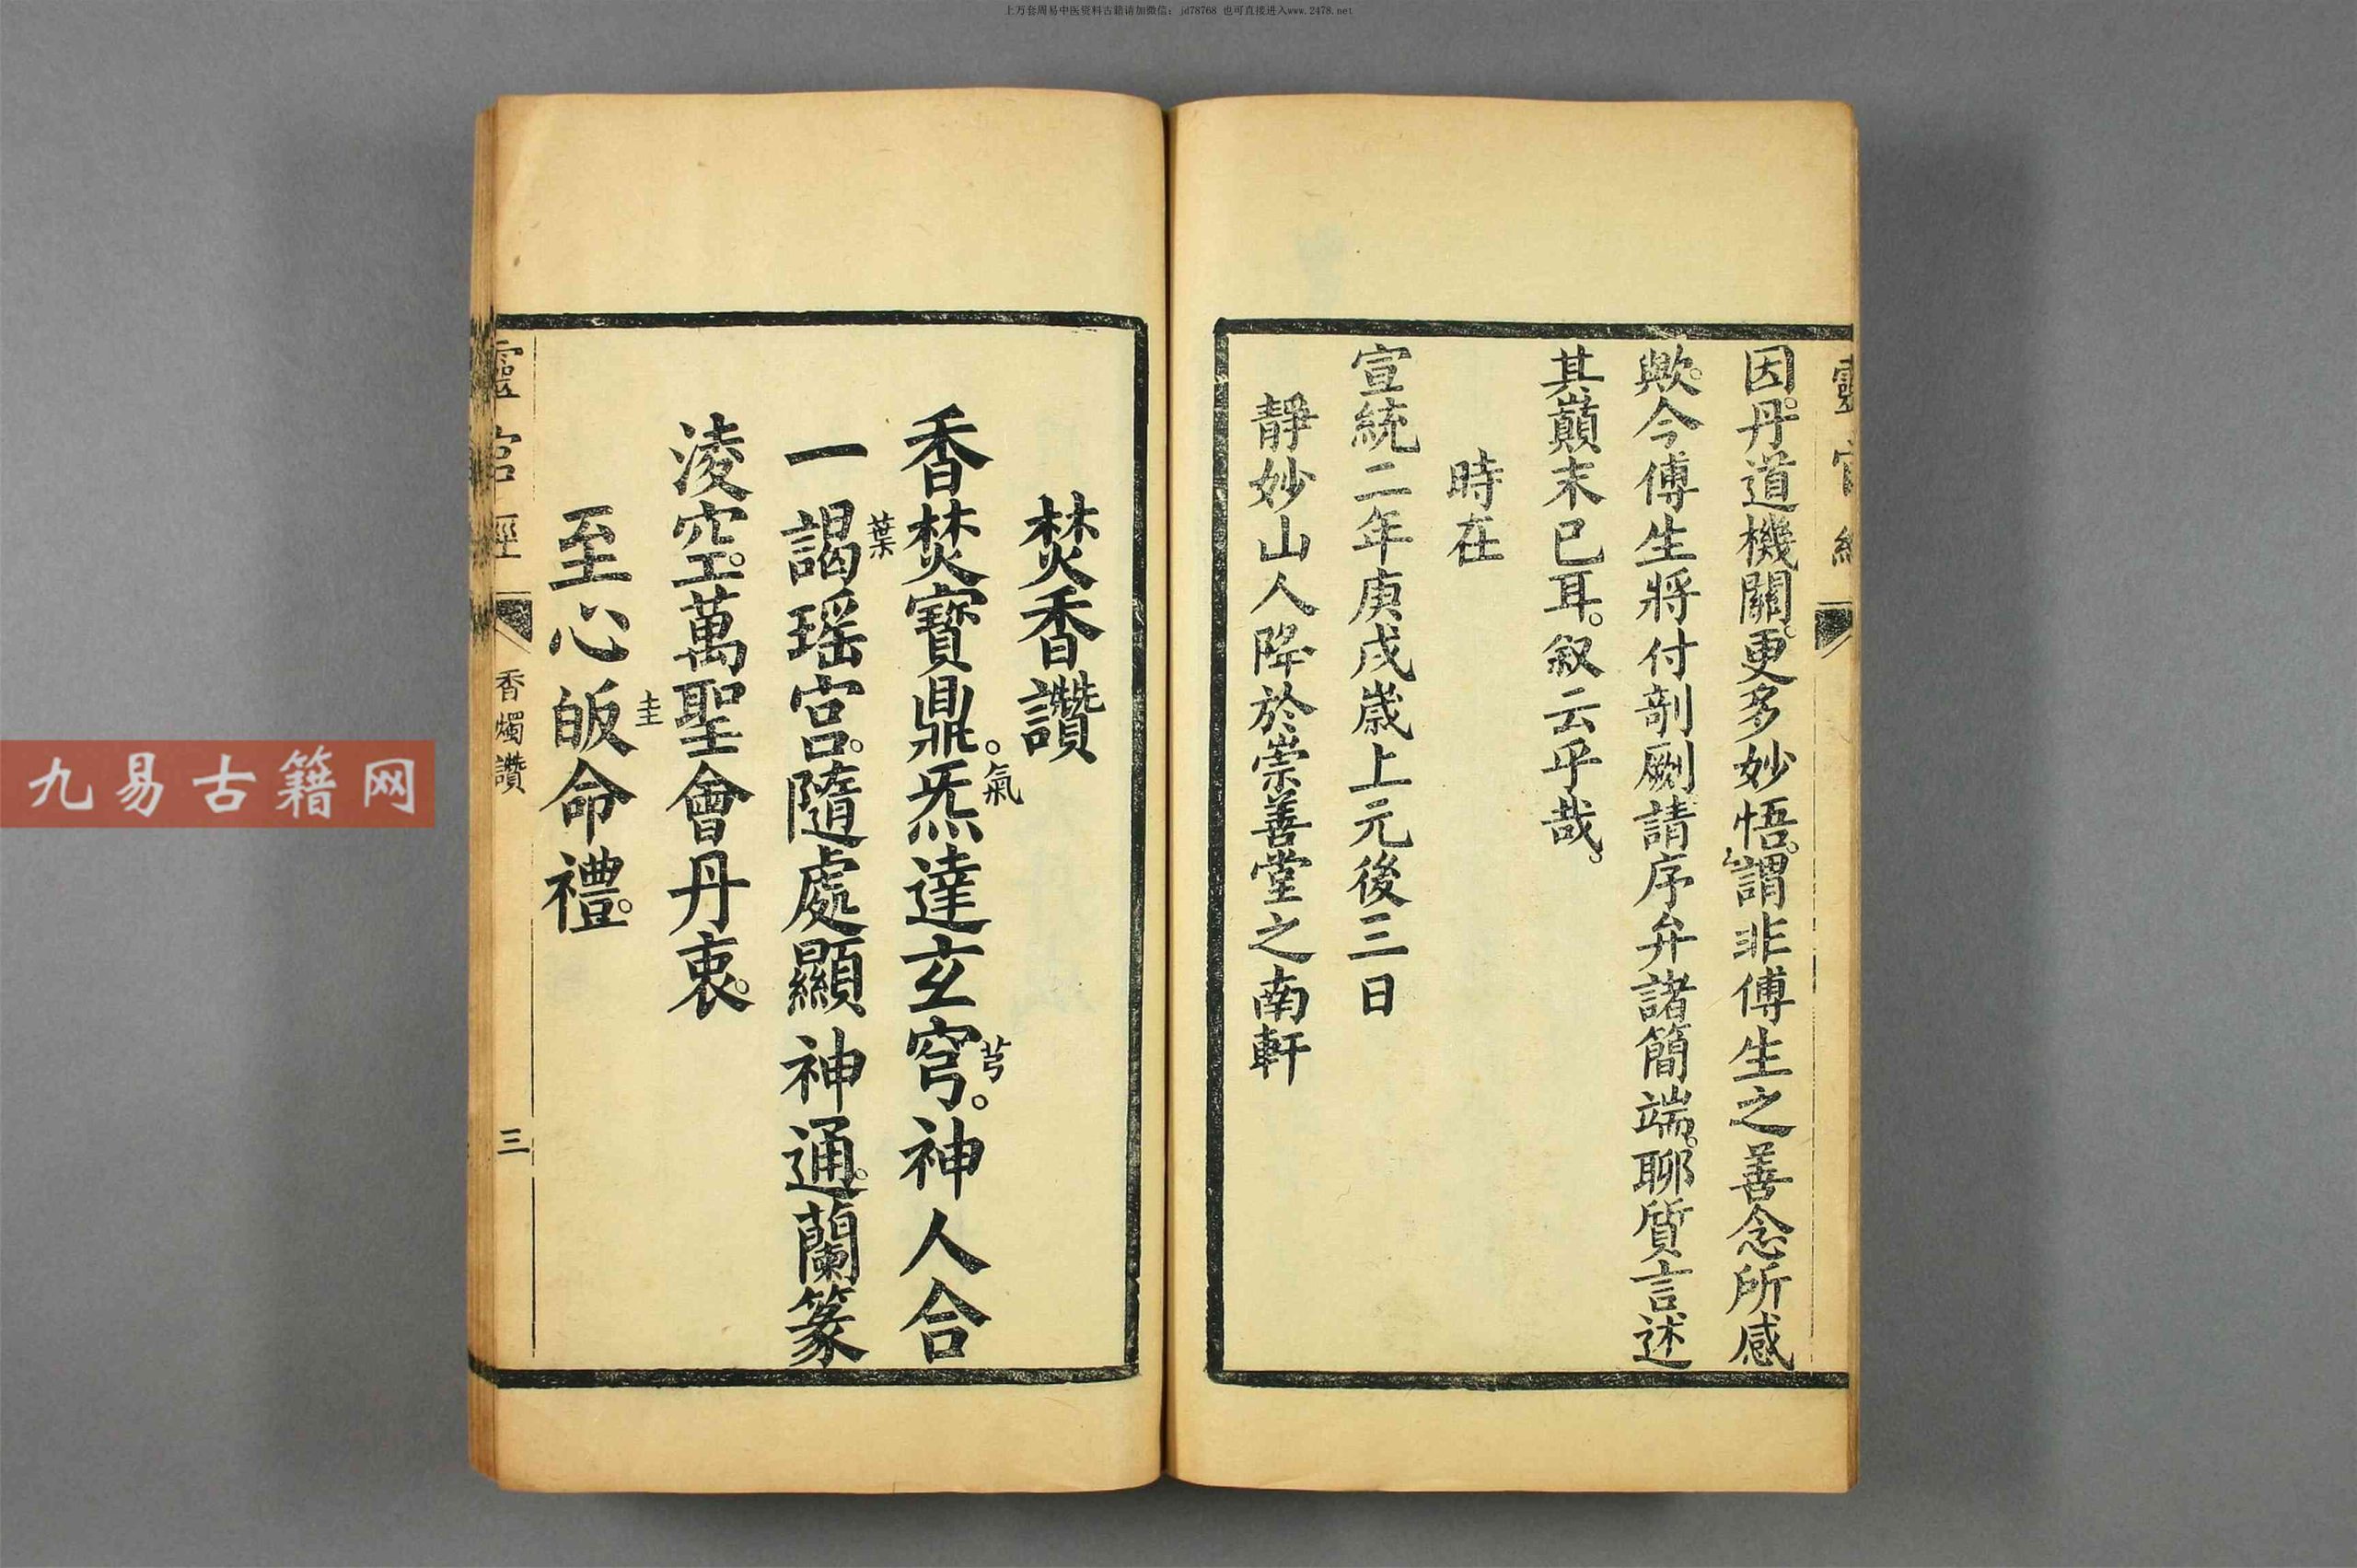 上万套周易中医资料古籍请加微信：jd78768 也可直接进入www.2478.net
靈官經
因。丹道機關。更多妙悟。謂非傅生之善念所感
歟。今傅生將付剞劂。請序弁諸簡端。聊質言述
其巔末已耳。敘云乎哉。
時在
宣統二年庚戌歲上元後三日
靜妙山人降於崇善堂之南軒
焚香讚
香焚寶鼎。炁達玄穹。神人合
氣
芎
一謁瑤宮。隨處顯神通。蘭篆
葉
淩空。萬聖會丹衷。
至心皈命禮。
圭
靈官經
香燭讚
三
九易古籍网